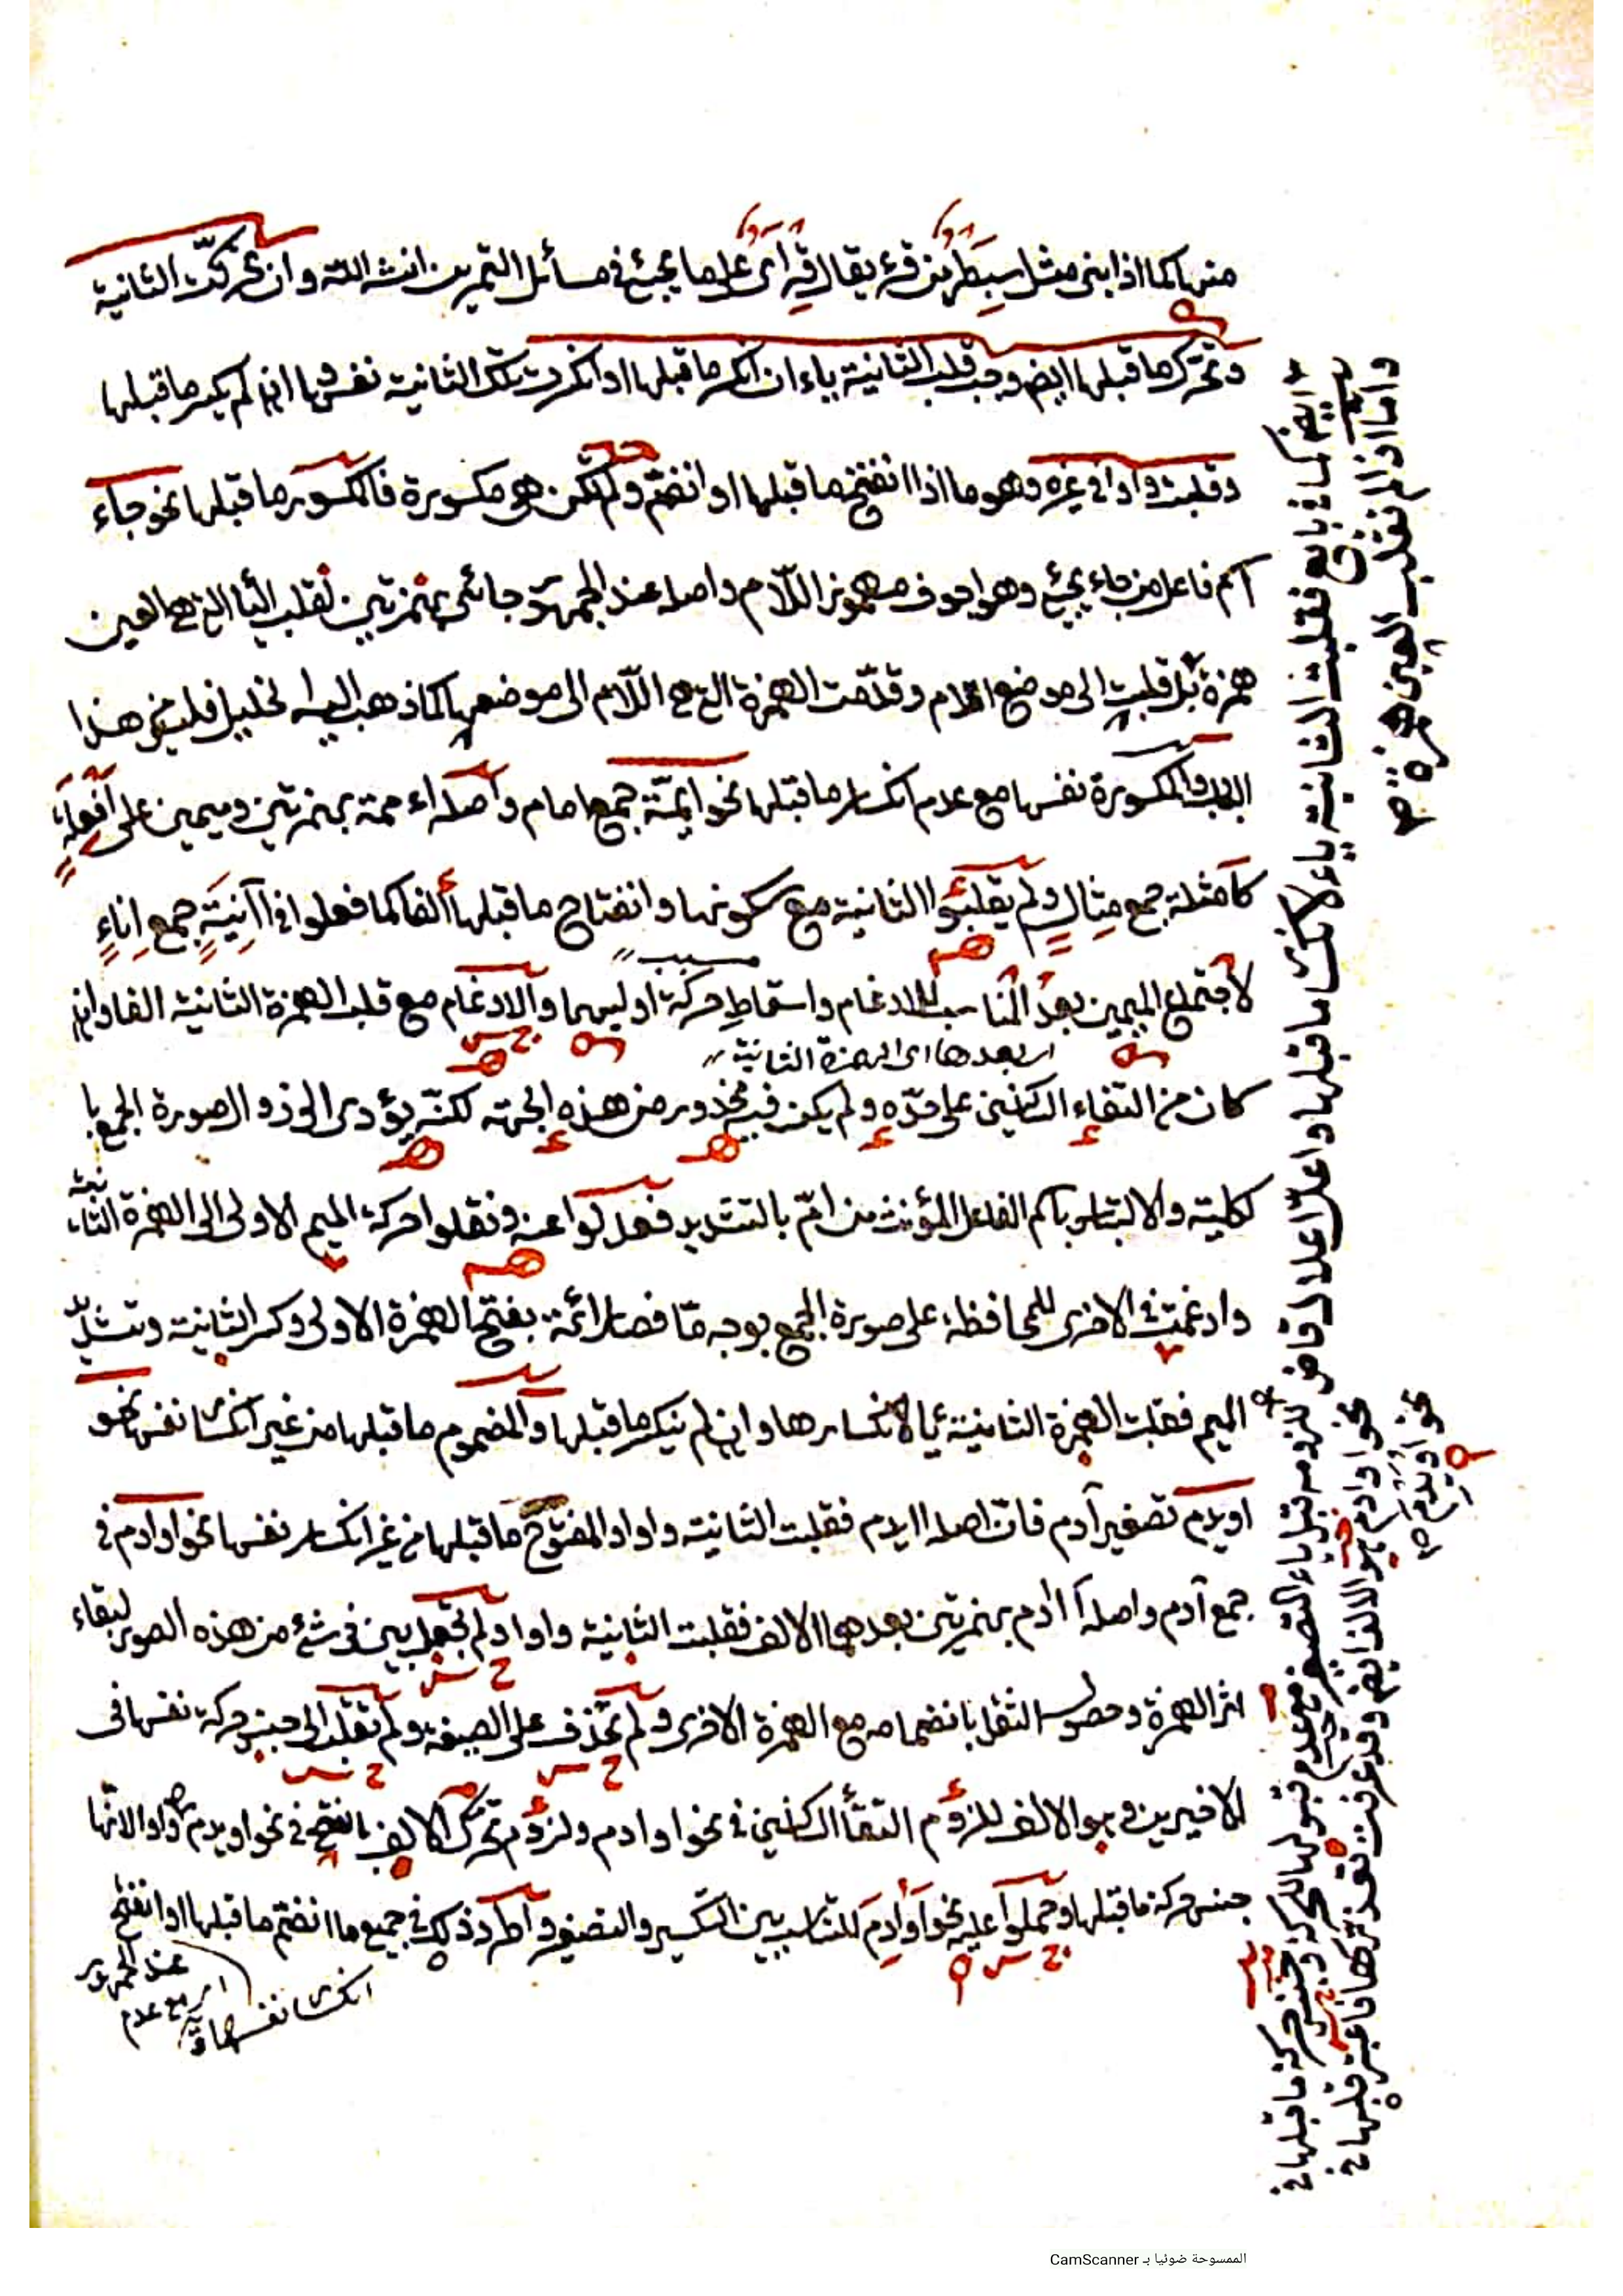 منها كما اذا بنى مثل سبطر من قرء يقال قرءى على ما يجيئ فى مسائل التمرين انشاء الله وان تحركت الثانية
وتحرك ما قبلها ايضا وجب قلب الثانية ياء ان انكسر ما قبلها او انكسرت تلك الثانية نفسها ان لم يكسر ما قبلها
وقلبت واوا فى غيره وهو ما اذا انفتح ما قبلها او انضم ولم تكن هى مكسورة فالمكسور ما قبلها نحو جاء
اسم فاعل من جاء يجيئ وهو اجوف مهموز اللام واصله عند الجمهور جائئ بهمزتين لقلب الياء التى هى العين
همزة بل قلبت الى موضع اللام وقدمت الهمزة التى هى اللام الى موضعها كما ذهب اليه الخليل فليس من هذا
الباب والمكسورة نفسها مع عدم انكسار ما قبلها نحو ايمة جمع امام واصله اءممة بهمزتين وميمين على افعلة
كامثلة جمع مثال ولم يقلبوا الثانية مع سكونها وانفتاح ما قبلها الفا كما فعلوا فى اآنية جمع اناء
لاجتماع الميمين بعد المناسب للادغام واسقاط حركة اوليهما والادغام مع قلب الهمزة الثانية الفا وان
اى بعدها اى الهمزة الثانية
كان من التقاء الساكنين على حده ولم يكن فيه محذور من هذه الجهة لكنه يؤدى الى زوال صورة الجمع با
لكلية والالتباس باسم الفاعل المؤنث من ام بالتشديد فعدلوا عنه ونقلوا حركة الميم الاولى الى الهمزة الثانية
وادغمت فى الاخرى للمحافظة على صورة الجمع بوجه ما فصار ائمة بفتح الهمزة الاولى وكسر الثانية وتشديد
الميم فقلبت الهمزة الثانية يا لانكسارها وان لم ينكسر ما قبلها والمضموم ما قبلها من غير انكسار نفسها نحو
اويدم تصغير آدم فان اصله اايدم فقلبت الثانية واوا والمفتوح ما قبلها من غير انكسار نفسها نحو اوادم فى
جمع آدم واصله اآدم بهمزتين بعدهما الالف فقلبت الثانية واوا ولم تجعل بين بين فى شئ من هذه الصور لبقاء
اثر الهمزة وحصول الثقل بانضمامه مع الهمزة الاخرى ولم تحذف على الصيغة ولم تقلب الى جنس حركة نفسها فى
الاخيرين وهو الالف للزوم التقاء الساكنين فى نحو اوادم ولزوم تحرك الالف بالفتح فى نحو اويدم والواو لانها
جنس حركة ما قبلها وحملوا عليه نحو اوادم للتناسب بين التكسير والتصغير واطرد ذلك فى جميع ما انضم ما قبلها او انفتح
عند الجمهور
اى مع عدم
انكسار نفسها
ايضا كما فى بايع فقلبت الثانية ياء لانكسار ما قبلها واعل اعلال قاض
واما اذا لم نقلب العين همزة صح
لزومه قبل ياء التصغير مع عدم قبولها الحركة وجنس حركة ما قبلها فى
نحو اوادم هو الالف ايضا وقد عرفت تعذرها فاعتبر قبلها فى
نحو اويدم